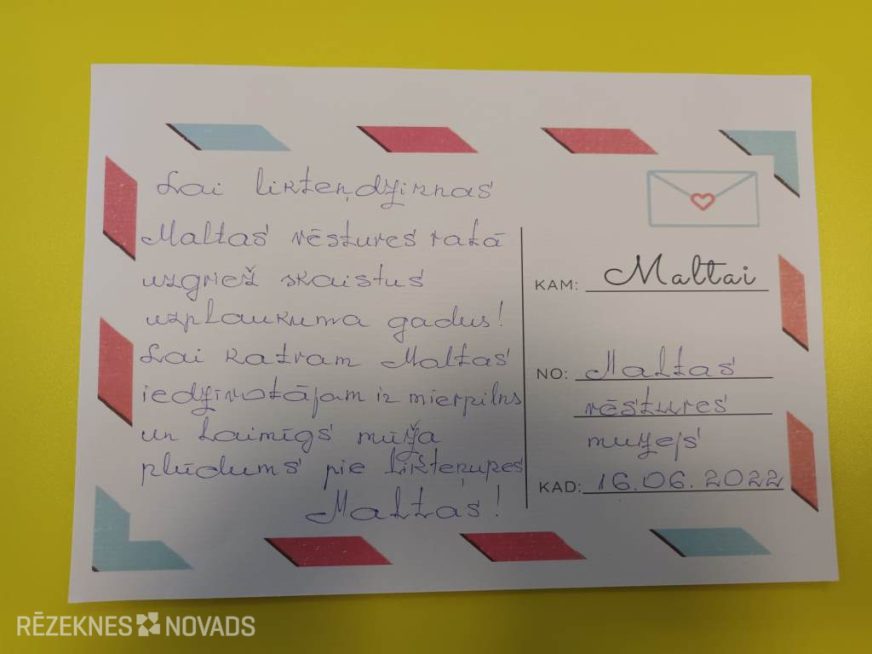 Lai likteņdzirnas
Maltas vēstures ratā
uzgriež skaistus
uzplaukuma gadus!
Lai katram Maltas
iedzīvotājam ir mierpilns
un laimīgs mūža
plūdums pie likteņupes
Maltas!
KAM: Maltai
NO: Maltas
vēstures
muzejs
KAD: 16.06.2022
RĒZEKNES NOVADS